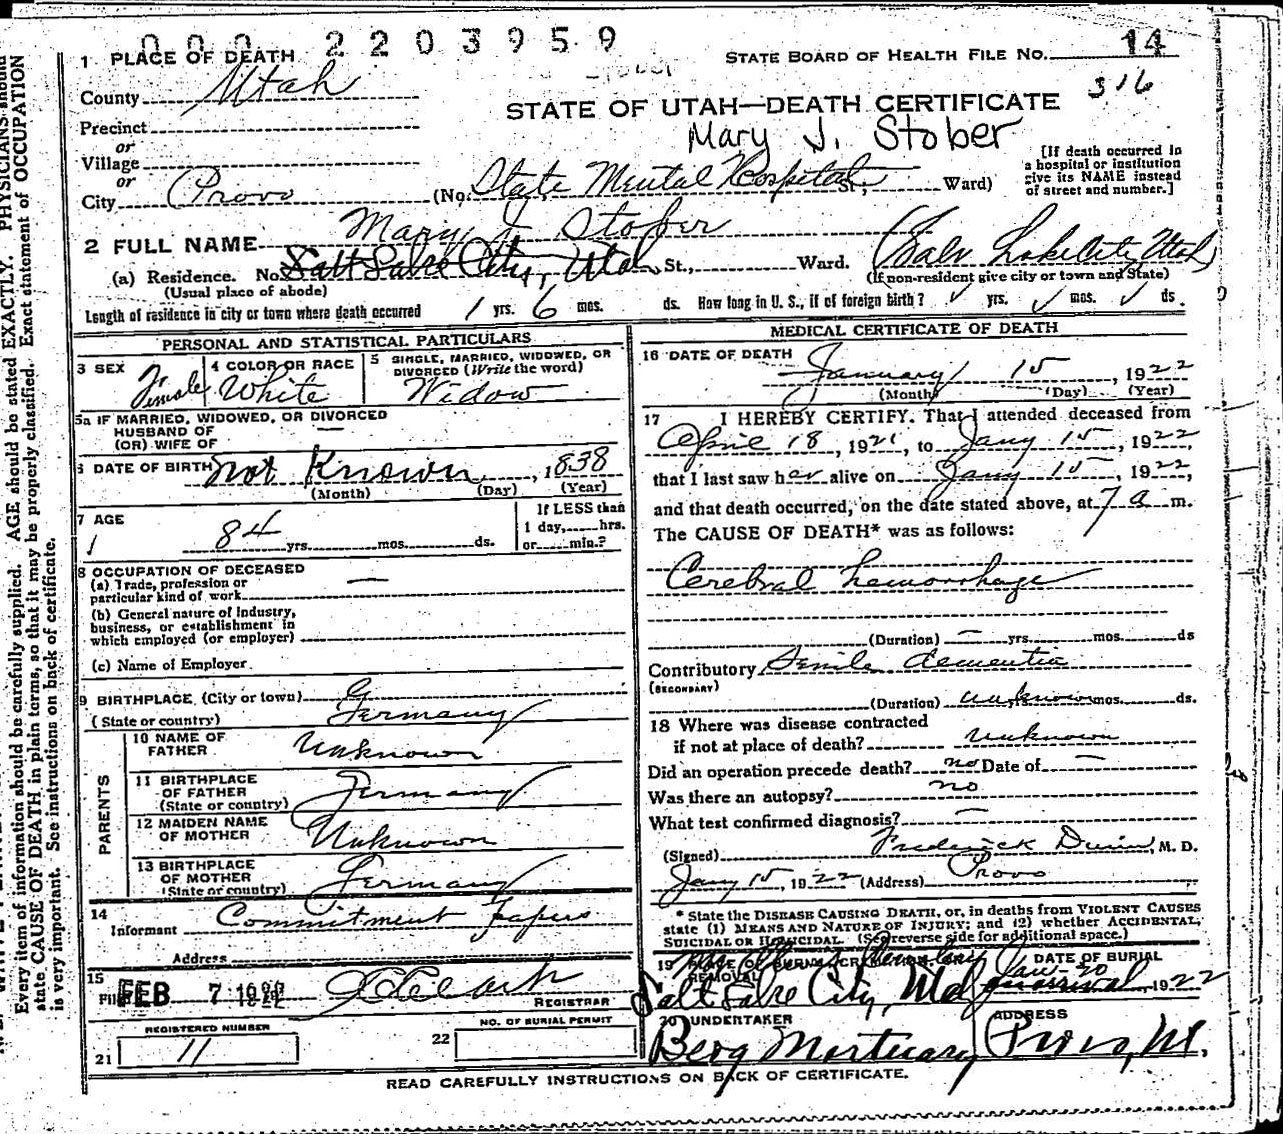 000 2203959
1 PLACE OF DEATH
STATE BOARD OF HEALTH FILE No. 14
County Utah
316
STATE OF UTAH—DEATH CERTIFICATE
Precinct
or
Mary J. Stober
Village
or
City Provo (No. State Mental Hospital St., Ward)
[If death occurred in a hospital or institution give its NAME instead of street and number.]
2 FULL NAME Mary J Stober
(a) Residence. No. Salt Lake City, Utah St., Ward. (Salt Lake City, Utah)
(Usual place of abode) (If non-resident give city or town and State)
Length of residence in city or town where death occurred 1 yrs. 6 mos. ds. How long in U. S., if of foreign birth? ✓ yrs. ✓ mos. ✓ ds.
PERSONAL AND STATISTICAL PARTICULARS
3 SEX Female
4 COLOR OR RACE White
5 SINGLE, MARRIED, WIDOWED, OR DIVORCED (Write the word) Widow
5a IF MARRIED, WIDOWED, OR DIVORCED
HUSBAND OF —
(OR) WIFE OF
6 DATE OF BIRTH Not Known, 1838
(Month) (Day) (Year)
7 AGE
84 yrs. mos. ds.
If LESS than
1 day, hrs.
or min.?
8 OCCUPATION OF DECEASED
(a) Trade, profession or
particular kind of work —
(b) General nature of Industry,
business, or establishment in
which employed (or employer)
(c) Name of Employer
9 BIRTHPLACE (City or town)
(State or country) Germany
PARENTS
10 NAME OF FATHER Unknown
11 BIRTHPLACE OF FATHER (State or country) Germany
12 MAIDEN NAME OF MOTHER Unknown
13 BIRTHPLACE OF MOTHER (State or country) Germany
14
Informant Commitment papers
Address
15
Filed FEB 7 1922
REGISTRAR
REGISTERED NUMBER
21 11
22 NO. OF BURIAL PERMIT
MEDICAL CERTIFICATE OF DEATH
16 DATE OF DEATH
January 15, 1922
(Month) (Day) (Year)
17 I HEREBY CERTIFY. That I attended deceased from
April 18, 1921, to Jany 15, 1922,
that I last saw her alive on Jany 15, 1922,
and that death occurred, on the date stated above, at 7 a m.
The CAUSE OF DEATH* was as follows:
Cerebral hemorrhage
(Duration) — yrs. mos. ds
Contributory Senile dementia
(SECONDARY)
(Duration) unknown mos. ds.
18 Where was disease contracted
if not at place of death? unknown
Did an operation precede death? no Date of —
Was there an autopsy? no
What test confirmed diagnosis? —
(Signed) Frederick Dunn, M. D.
Jany 15, 1922 (Address) Provo
* State the DISEASE CAUSING DEATH, or, in deaths from VIOLENT CAUSES
state (1) MEANS AND NATURE OF INJURY; and (2) whether ACCIDENTAL,
SUICIDAL OR HOMICIDAL. (See reverse side for additional space.)
19 PLACE OF BURIAL, CREMATION, OR REMOVAL
DATE OF BURIAL
Salt Lake City, Utah Jan-20 1922
20 UNDERTAKER
Berg Mortuary
ADDRESS
Provo, Ut.
READ CAREFULLY INSTRUCTIONS ON BACK OF CERTIFICATE.
Every item of information should be carefully supplied. AGE should be stated EXACTLY. PHYSICIANS should
state CAUSE OF DEATH in plain terms, so that it may be properly classified. Exact statement of OCCUPATION
is very important. See instructions on back of certificate.